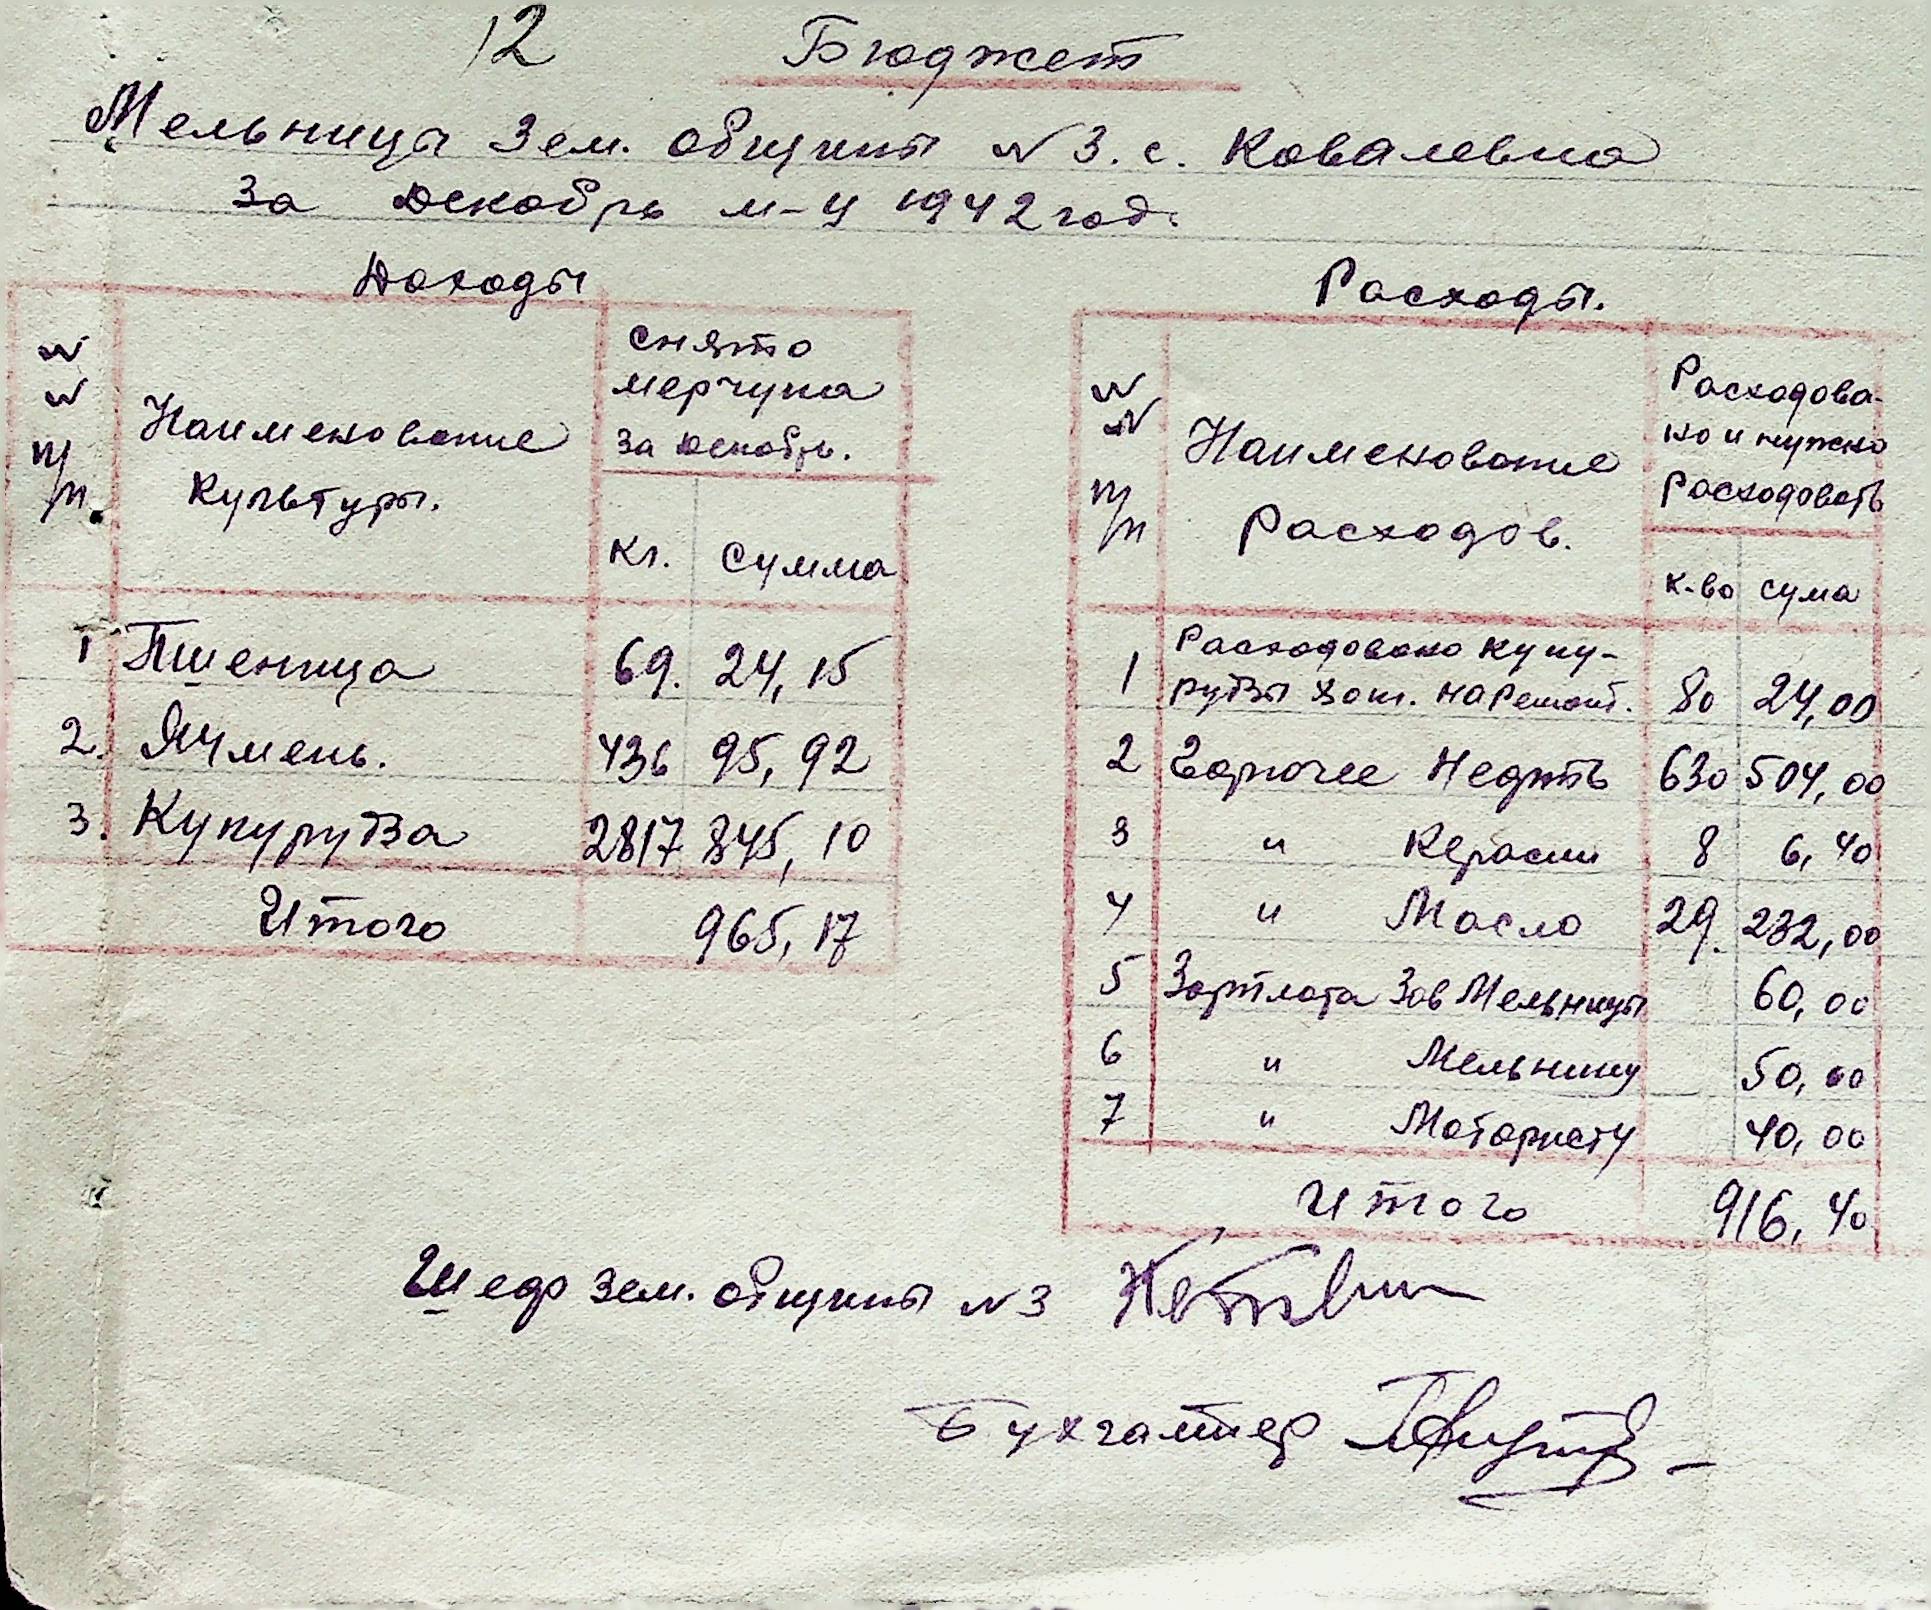 12 Бюджет
Мельницы Зем. общины №3. с. Ковалевка
за декабрь м-ц 1942 год.
Доходы
№ № п/п.
Наименование
культуры.
снято
мерчука
за декабрь.
Кг. Сумма
1 Пшеница 69. 24,15
2. Ячмень. 436 95,92
3. Кукурудза 2817 845,10
Итого 965,17
Расходы.
№ № п/п
Наименование
Расходов.
Расходова-
но и нужно
расходовать
к-во сума
1 Расходовано куку-
рудзы на ремонт. 80 24,00
2 Горючее Нефть 630 504,00
3 " Керосин 8 6,40
4 " Масло 29. 232,00
5 Зарплата Зав Мельницы 60,00
6 " Мельнику 50,00
7 " Мотористу 40,00
Итого 916,40
Шеф зем. общины №3
Бухгалтер